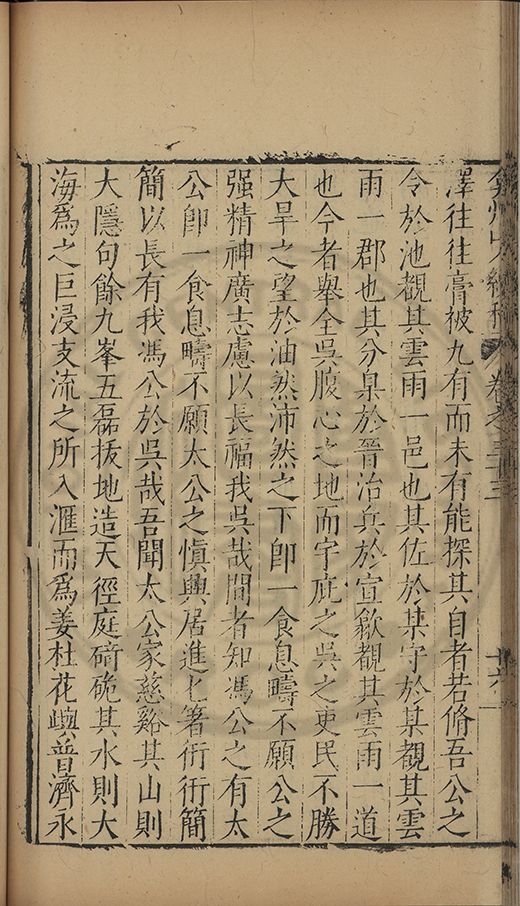 弇州山人續稿 卷之三十三 十六
澤往往膏被九有而未有能探其自者若脩吾公之
令於池觀其雲雨一邑也其佐於某守於某觀其雲
雨一郡也其分臬於晉治兵於宣歙觀其雲雨一道
也今者舉全吳腹心之地而宇庇之吳之吏民不勝
大旱之望於油然沛然之下卽一食息疇不願公之
强精神廣志慮以長福我吳哉間者知馮公之有太
公卽一食息疇不願太公之愼興居進匕箸衎衎簡
簡以長有我馮公於吳哉吾聞太公家慈谿其山則
大隱句餘九峯五磊拔地造天徑庭碕硊其水則大
海爲之巨浸支流之所入滙而爲姜杜花嶼普濟永